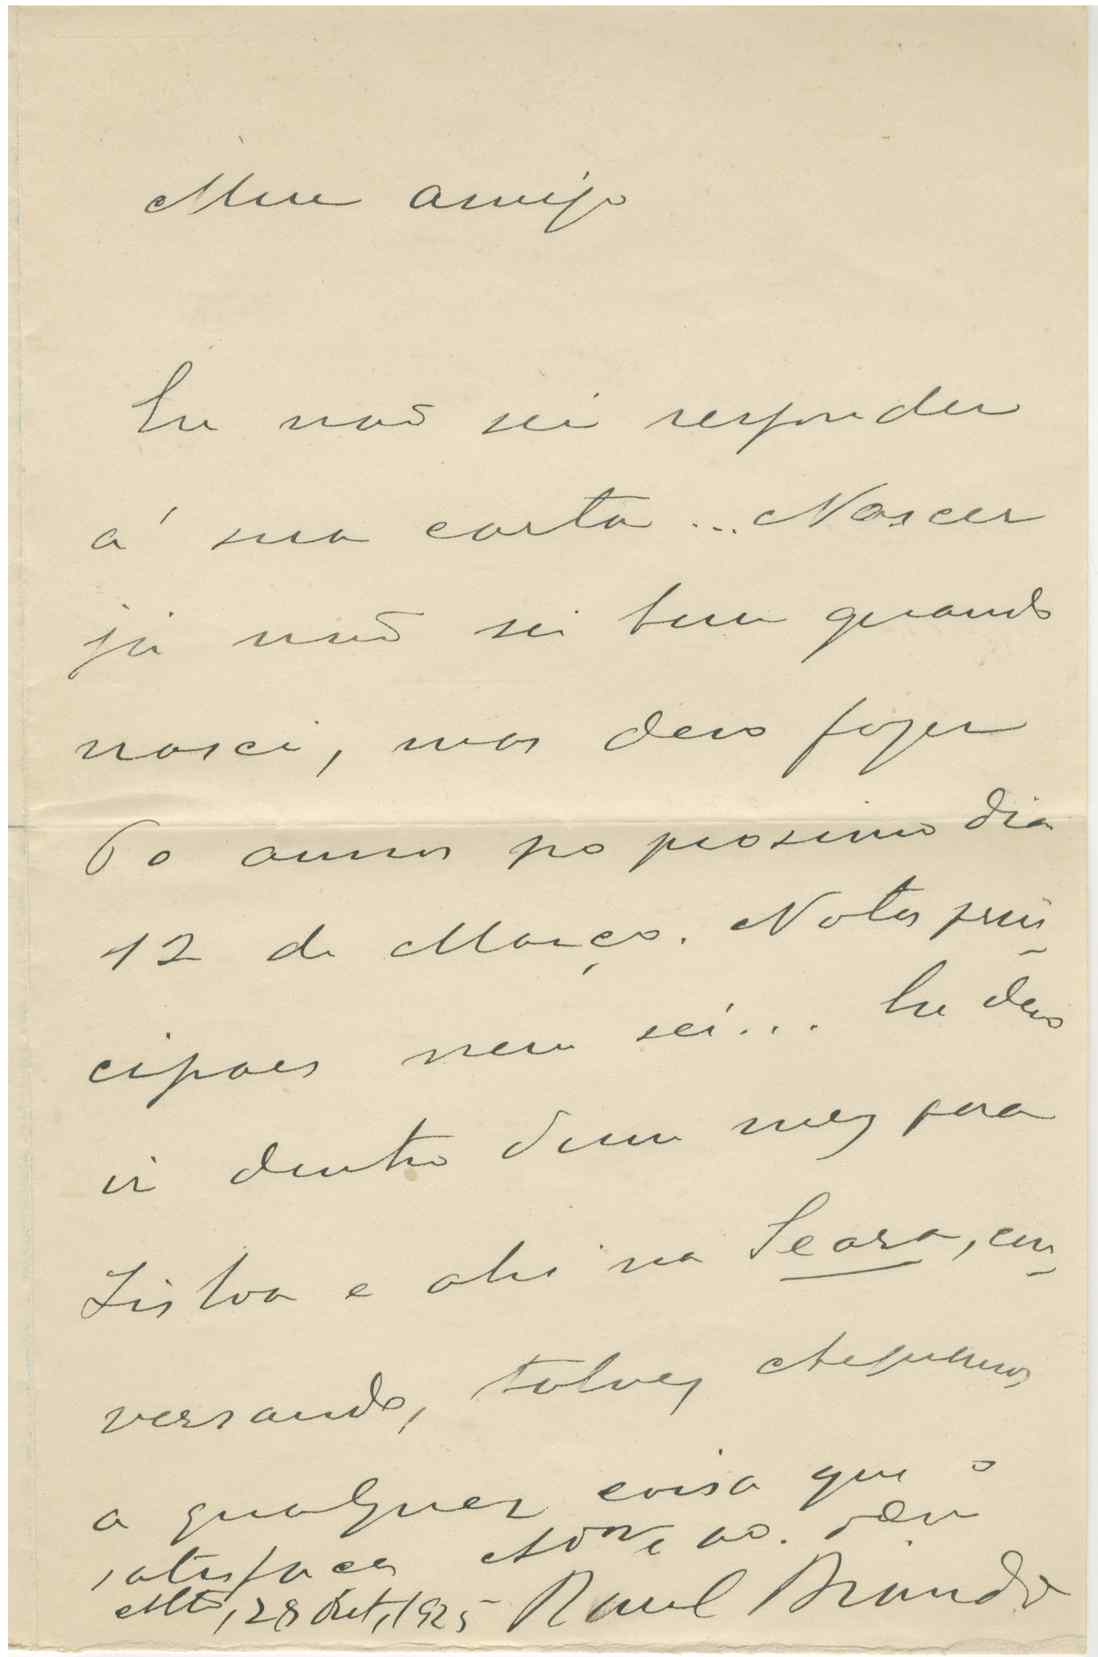 Meu amigo
Eu não sei responder
á sua carta... Nascer
já não sei bem quando
nasci, mas devo fazer
60 annos no proximo dia
12 de Março. Notas prin-
cipaes nem sei... Eu devo
ir dentro dum mez para
Lisboa e ahi na Seara, con-
versando, talvez cheguemos
a qualquer coisa que o
satisfaça seu
Alto, 28 Out, 1925 Raul Brandão